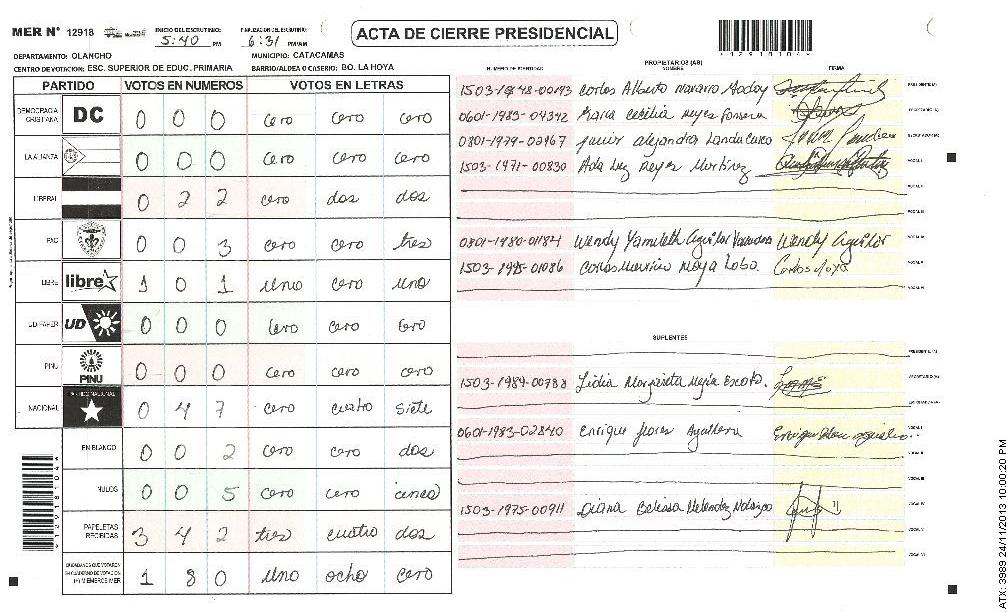 MER N° 12918 INICIO DEL ESCRUTINIO: 5:40 PM FINALIZACION DEL ESCRUTINIO: 6:31 PM/AM
ACTA DE CIERRE PRESIDENCIAL
DEPARTAMENTO: OLANCHO MUNICIPIO: CATACAMAS
CENTRO DE VOTACION: ESC. SUPERIOR DE EDUC. PRIMARIA BARRIO/ALDEA O CASERIO: BO. LA HOYA
PARTIDO VOTOS EN NUMEROS VOTOS EN LETRAS
DEMOCRACIA CRISTIANA DC 0 0 0 cero cero cero
LA ALIANZA 0 0 0 cero cero cero
LIBERAL 0 2 2 cero dos dos
PAC 0 0 3 cero cero tres
LIBRE libre 1 0 1 uno cero uno
UD-FAPER UD 0 0 0 Cero cero Cero
PINU PINU 0 0 0 cero cero cero
NACIONAL PARTIDO NACIONAL 0 4 7 cero cuatro siete
EN BLANCO 0 0 2 cero cero dos
NULOS 0 0 5 cero cero cinco
PAPELETAS RECIBIDAS 3 4 2 tres cuatro dos
CIUDADANOS QUE VOTARON EN CUADERNO DE VOTACION (+) MIEMBROS MER 1 8 0 uno ocho cero
PROPIETARIOS (AS)
NUMERO DE IDENTIDAD NOMBRE FIRMA
Carlos Alberto Navarro PRESIDENTE (A)
0601-1983-04342 Maria Cecilia Reyes Fonseca SECRETARIO (A)
0801-1979-02967 Junior Alejandro Landa ESCRUTADOR (A)
1503-1971-00830 Ada Luz Reyes Martinez VOCAL I
VOCAL II
VOCAL III
0801-1980-01184 Wendy Yamileth Aguilar Wendy Aguilar VOCAL IV
Carlos Mauricio Moya Lobo. Carlos Moya VOCAL V
VOCAL VI
SUPLENTES
PRESIDENTE (A)
1503-1989-00788 Lidia Margarita Mejia Escoto. SECRETARIO (A)
ESCRUTADOR (A)
0601-1983-02840 Enrique flores Aguilera VOCAL I
VOCAL II
VOCAL III
1503-1975-00911 Diana Belissa Melendez VOCAL IV
VOCAL V
VOCAL VI
ATX: 3989 24/11/2013 10:00:20 PM